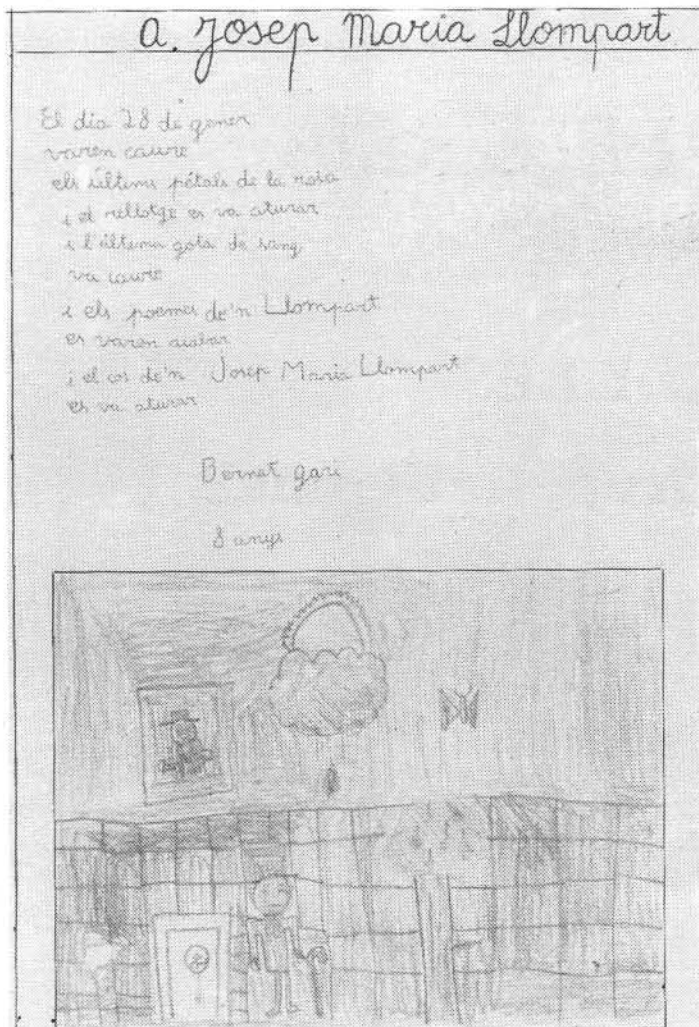 a. Josep Maria Llompart
El dia 28 de gener
varen caure
els últims pétals de la rosa
i el rellotge es va aturar
i l'última gota de sang
va caure
i els poemes de'n Llompart
es varen acabar
i el cos de'n Josep Maria Llompart
es va aturar
Bernat gari
8 anys